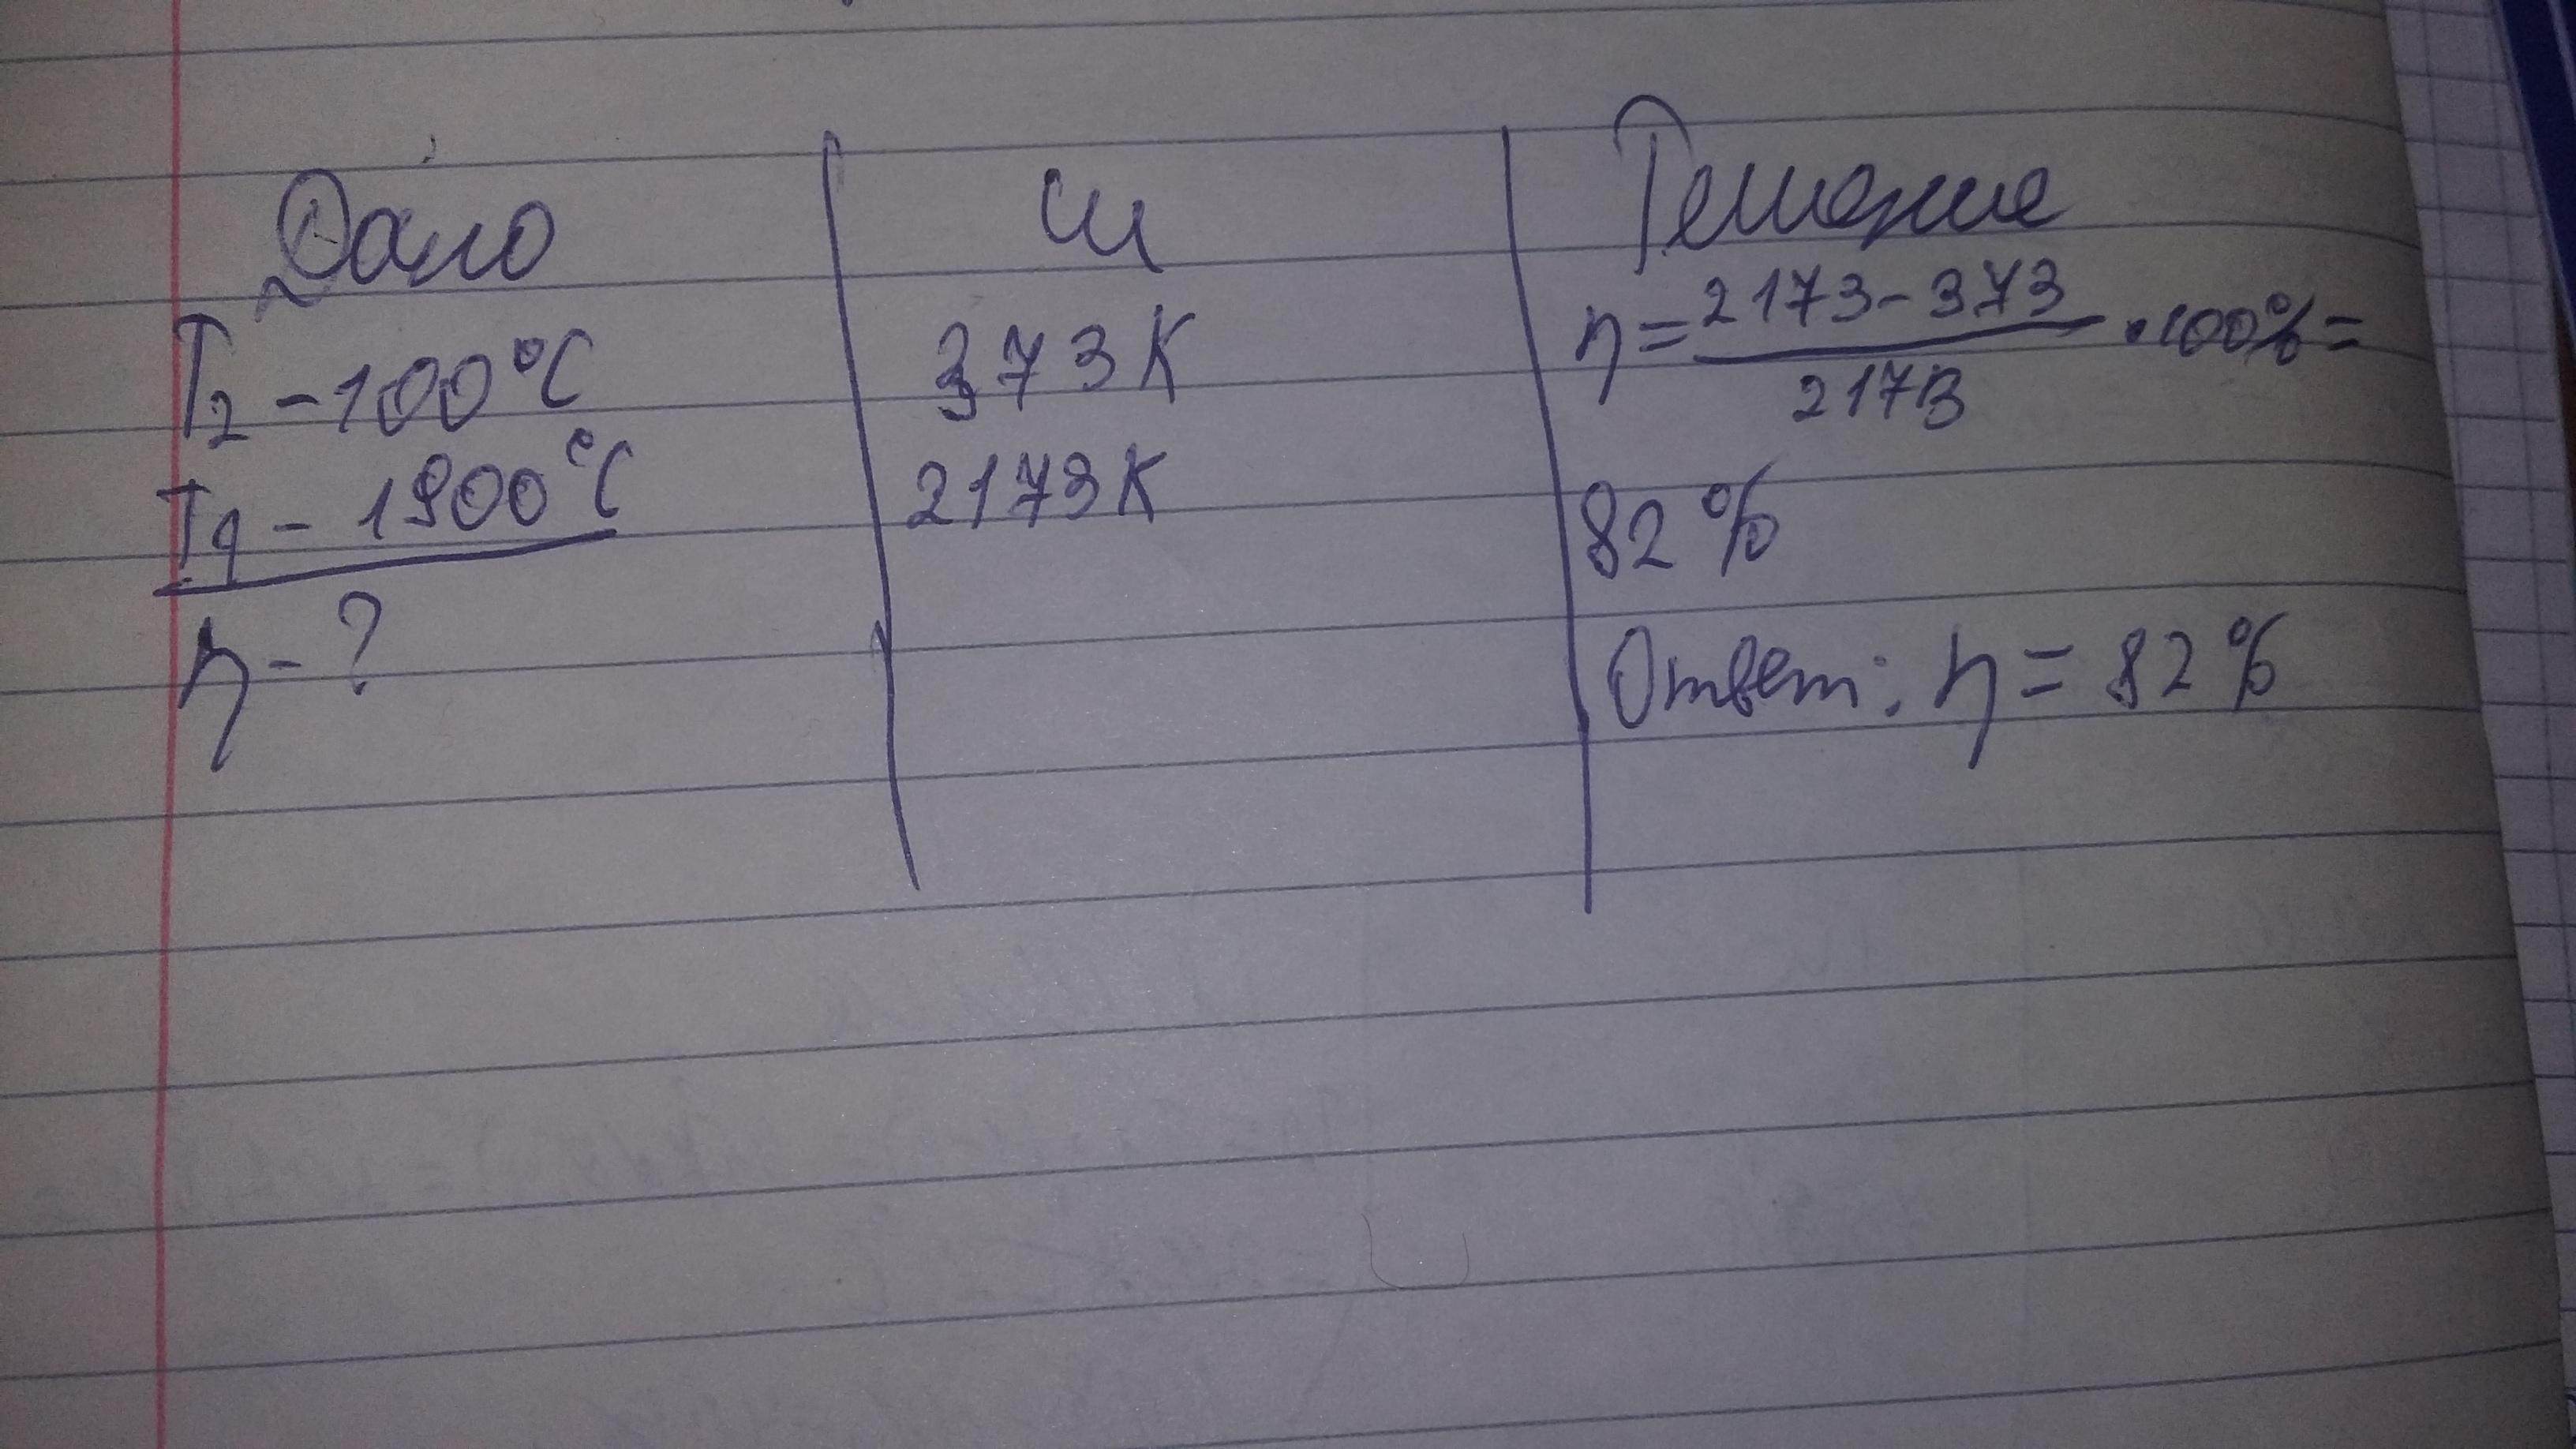 Дано
T2 - 100°C
T1 - 1900°C
η - ?
си
373 K
2173 K
Решение
η = 2173 - 373 / 2173 · 100% =
82 %
Ответ: η = 82 %